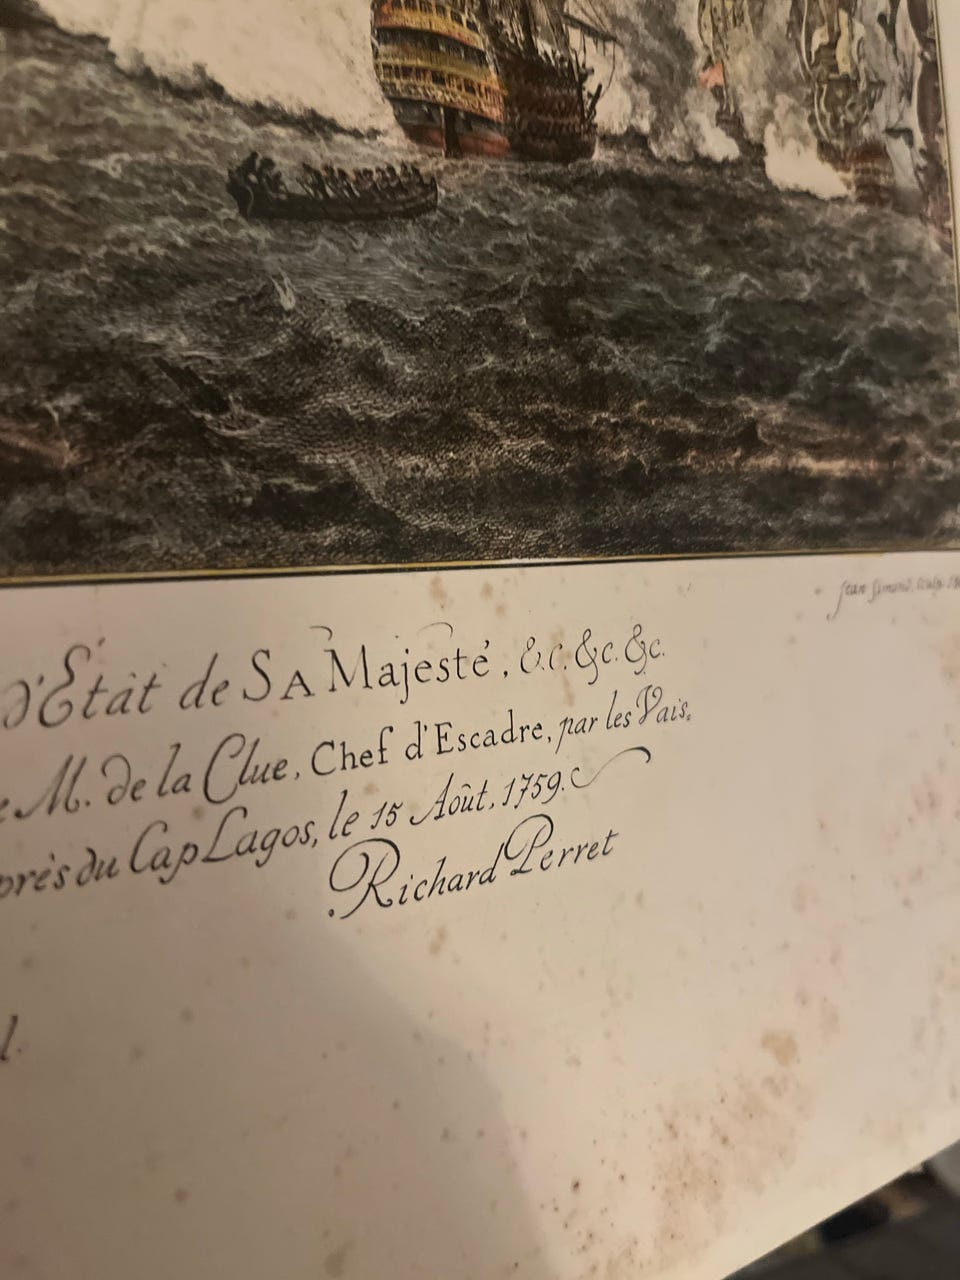 Jean Simond, Sculp.
d'Êtât de SA Majesté, &.c. &c. &c.
M. de la Clue, Chef d'Escadre, par les Vais.
près du Cap Lagos, le 15 Août, 1759.
Richard Perret
l.